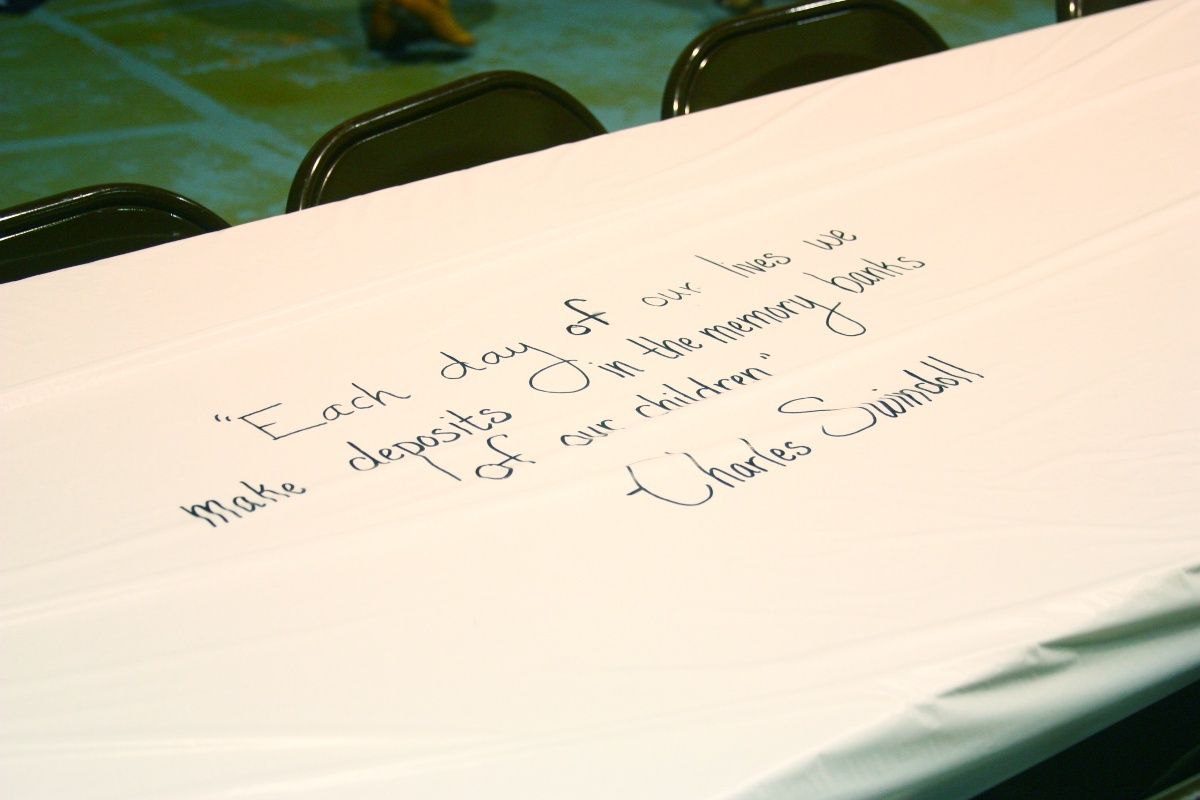 "Each day of our lives we
make deposits in the memory banks
of our children"
Charles Swindoll